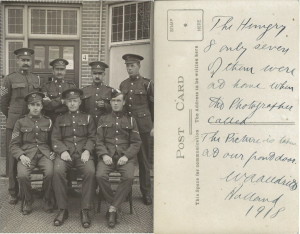 The Hungry
8 only seven
of them were
at home when
the Photographer
called
The Picture is taken
at our front door
Holland
1918
POST CARD
The address to be written here